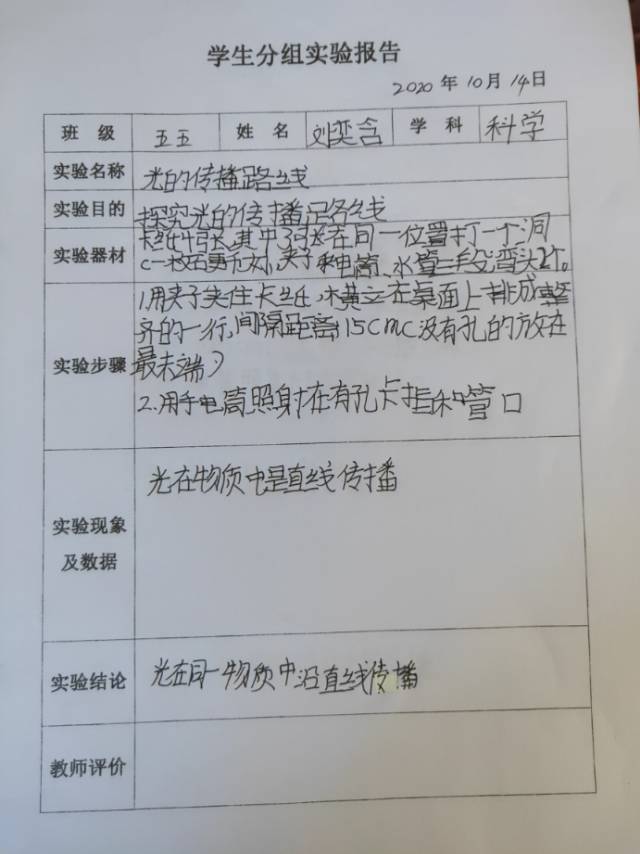 学生分组实验报告
2020 年 10 月 14 日
班 级 五五 姓 名 刘奕含 学 科 科学
实验名称 光的传播路线
实验目的 探究光的传播路线
卡纸4张,其中3张在同一位置打一个洞
实验器材 夹子 电筒、水管三段,弯头2个。
1.用夹子夹住卡纸,横立在桌面上排成整
齐的一行,间隔距离15cm(没有孔的放在
实验步骤 最末端)
2.用手电筒照射在有孔卡指和管口
光在物质中是直线传播
实验现象
及数据
实验结论 光在同一物质中沿直线传播
教师评价